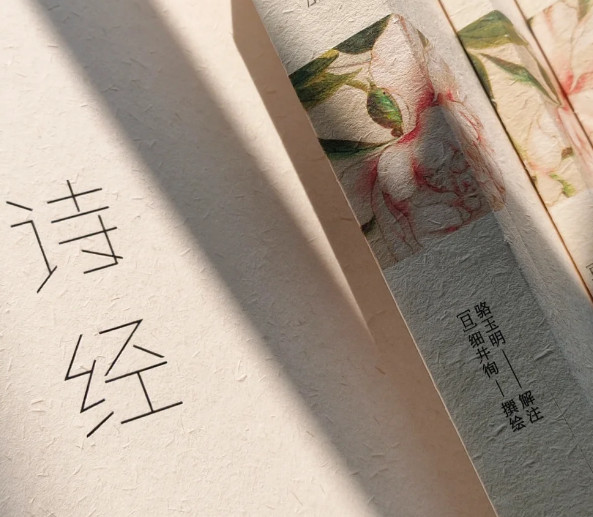 诗经
骆玉明——解注
[日]细井徇—撰绘